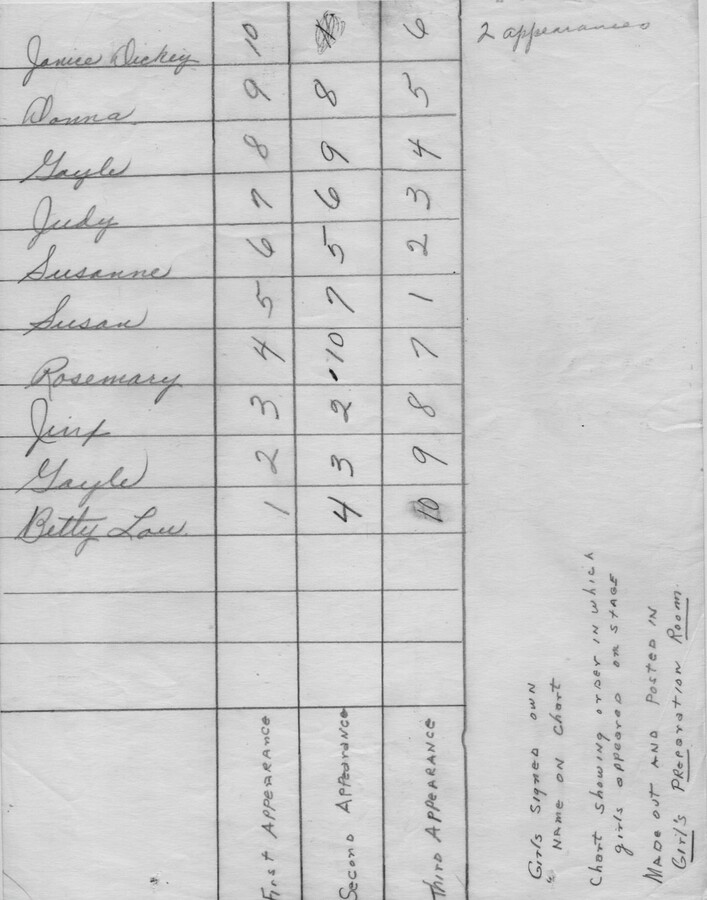 Janice Dickey 10 6 2 appearances
Donna 9 8 5
Gayle 8 9 4
Judy 7 6 3
Susanne 6 5 2
Susan 5 7 1
Rosemary 4 10 7
Jinx 3 2 8
Gayle 2 3 9
Betty Lou 1 4 10
First Appearance
Second Appearance
Third Appearance
Girls signed own
name on chart
Chart showing order in which
girls appeared on stage
Made out and posted in
Girl's Preparation Room.